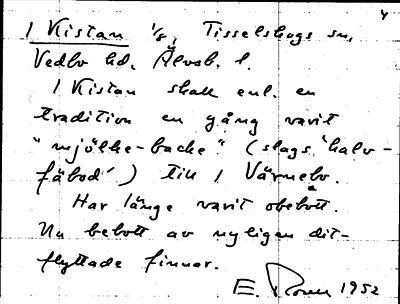 4
1 Kistan 1/8, Tisselskogs sn,
Vedbo hd. Älvsb. l.
1 Kistan skall enl. en
tradition en gång varit
"mjölke-backe" (slags 'halv-
fäbod') till 1 Värnebo.
Har länge varit obebott.
Nu bebott av nyligen dit-
flyttade finnar.
E. 1952